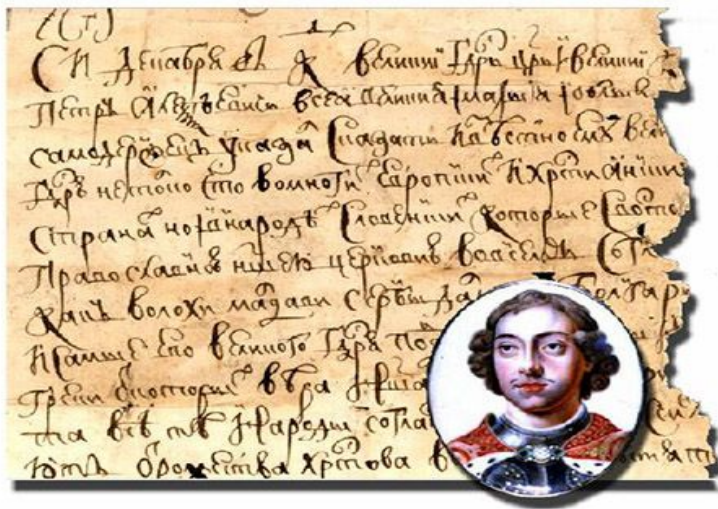 Декабря въ К великий Гдрь црь и великий
Петръ Алеѯѣевичь всеа великия и малыя и бѣлыя
самодержецъ указал сказать извѣстно ему вел
Гдрю не толко что во многих европских хрстиянских
странах но и в народѣх словенских которые с восто
православною нашею церковию во всемъ согл
какъ волохи мадави сербы дал болгар
и самые его великого Гдря под
греки от которых вѣра наша
та всѣ тѣ народы согла
ютъ от рожества хрстова в